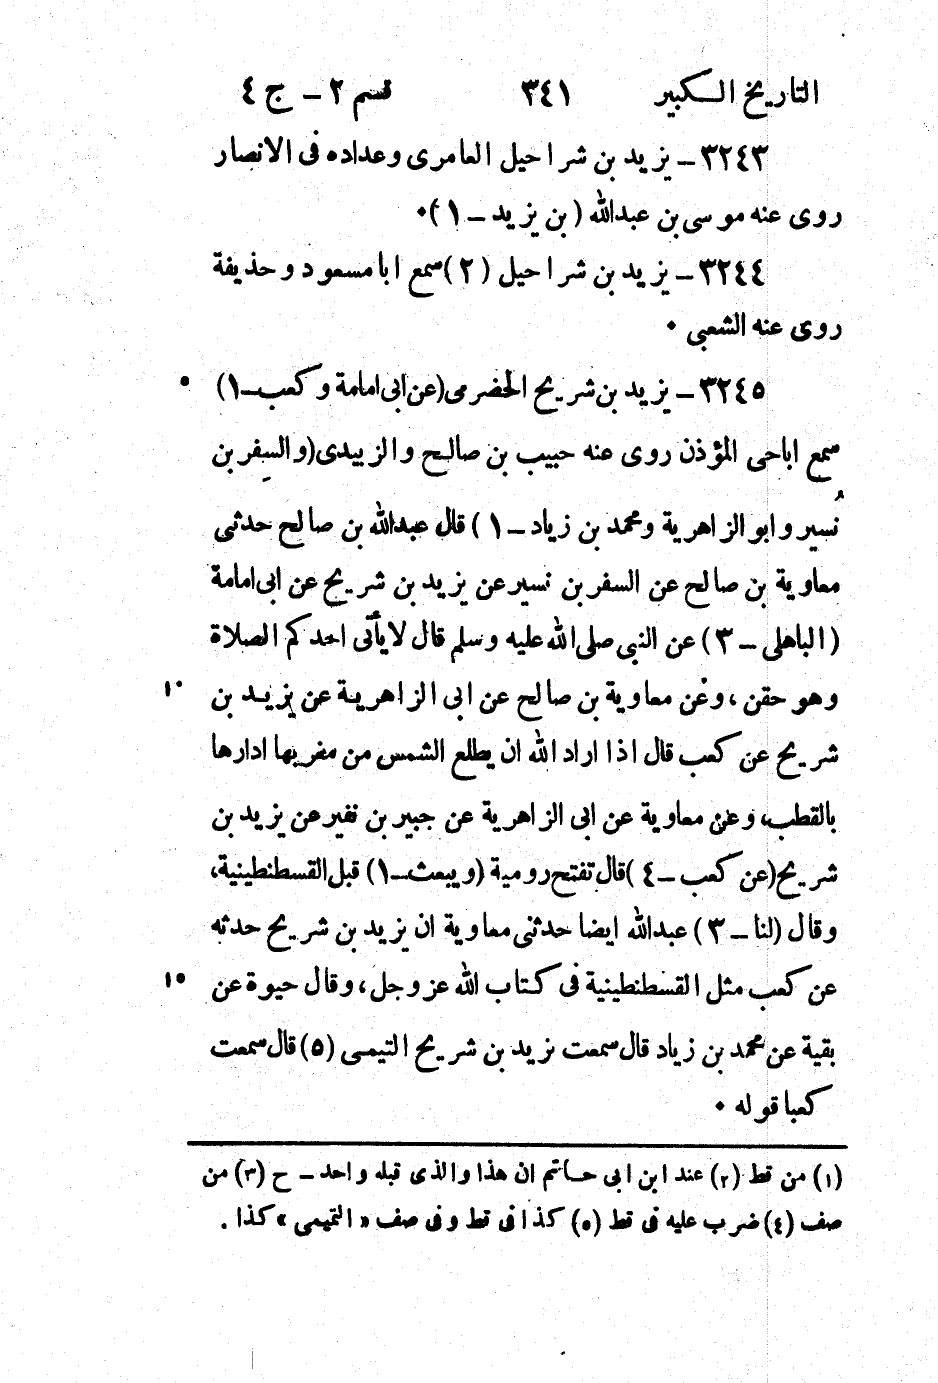 التاريخ الكبير ٣٤١ قسم ٢ – ج ٤
٣٢٤٣ – يزيد بن شراحيل العامرى وعداده فى الانصار
روى عنه موسى بن عبدالله (بن يزيد – ١)٠
٣٢٤٤ – يزيد بن شراحيل (٢) سمع ابا مسعود وحذيفة
روى عنه الشعبي ٠
٣٢٤٥ – يزيد بن شريح الحضرمى (عن ابى امامة وكعب – ١) ٥
سمع اباحى المؤذن روى عنه حبيب بن صالح والزبيدى (والسفر بن
نُسير وابو الزاهرية ومحمد بن زياد – ١) قال عبدالله بن صالح حدثنى
معاوية بن صالح عن السفر بن نسير عن يزيد بن شريح عن ابى امامة
(الباهلى – ٣) عن النبى صلى الله عليه وسلم قال لا يأتى احدكم الصلاة
وهو حقن ، وعن معاوية بن صالح عن ابى الزاهرية عن يزيد بن ١٠
شريح عن كعب قال اذا اراد الله ان يطلع الشمس من مغربها ادارها
بالقطب، وعن معاوية عن ابى الزاهرية عن جبير بن نفير عن يزيد بن
شريح (عن كعب – ٤) قال تفتح رومية (ويبعث – ١) قبل القسطنطينية،
وقال (لنا – ٣) عبدالله ايضا حدثنى معاوية ان يزيد بن شريح حدثه
عن كعب مثل القسطنطينية فى كتاب الله عزوجل، وقال حيوة عن ١٥
بقية عن محمد بن زياد قال سمعت يزيد بن شريح التيمى (٥) قال سمعت
كعبا قوله ٠
(١) من قط (٢) عند ابن ابى حاتم ان هذا والذى قبله واحد – ح (٣) من
صف (٤) ضرب عليه فى قط (٥) كذا فى قط وفى صف « التميمى » كذا .